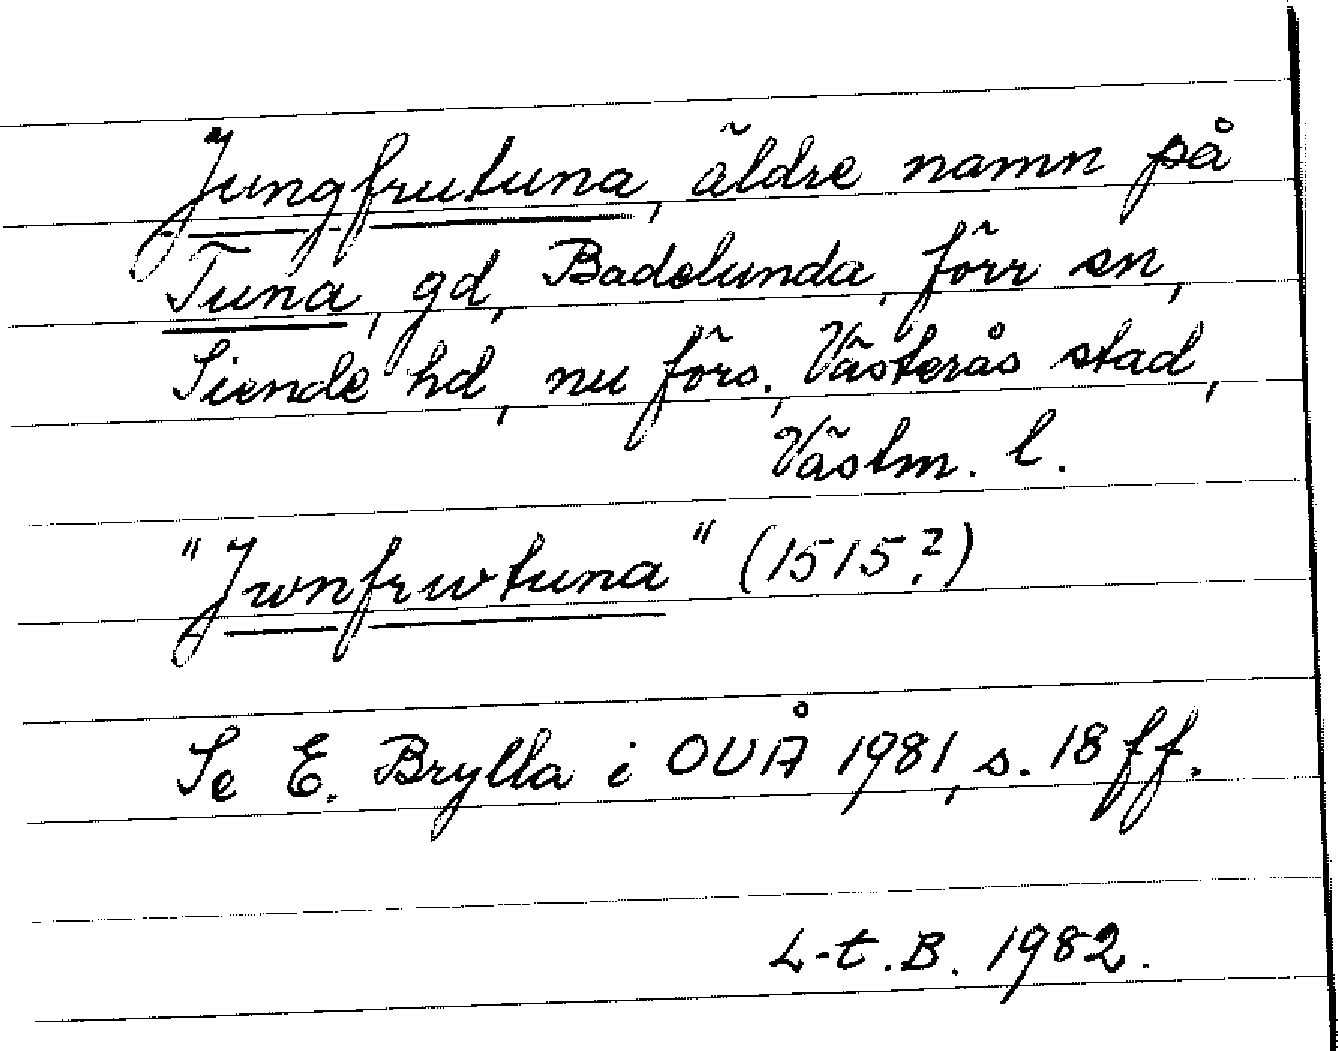 Jungfrutuna, äldre namn på
Tuna, gd, Badelunda, förr sn,
Siende hd, nu förs., Västerås stad,
Västm. l.
"Jwnfrwtuna" (1515?)
Se E. Brylla i OUÅ 1981, s. 18 ff.
L-t. B. 1982.